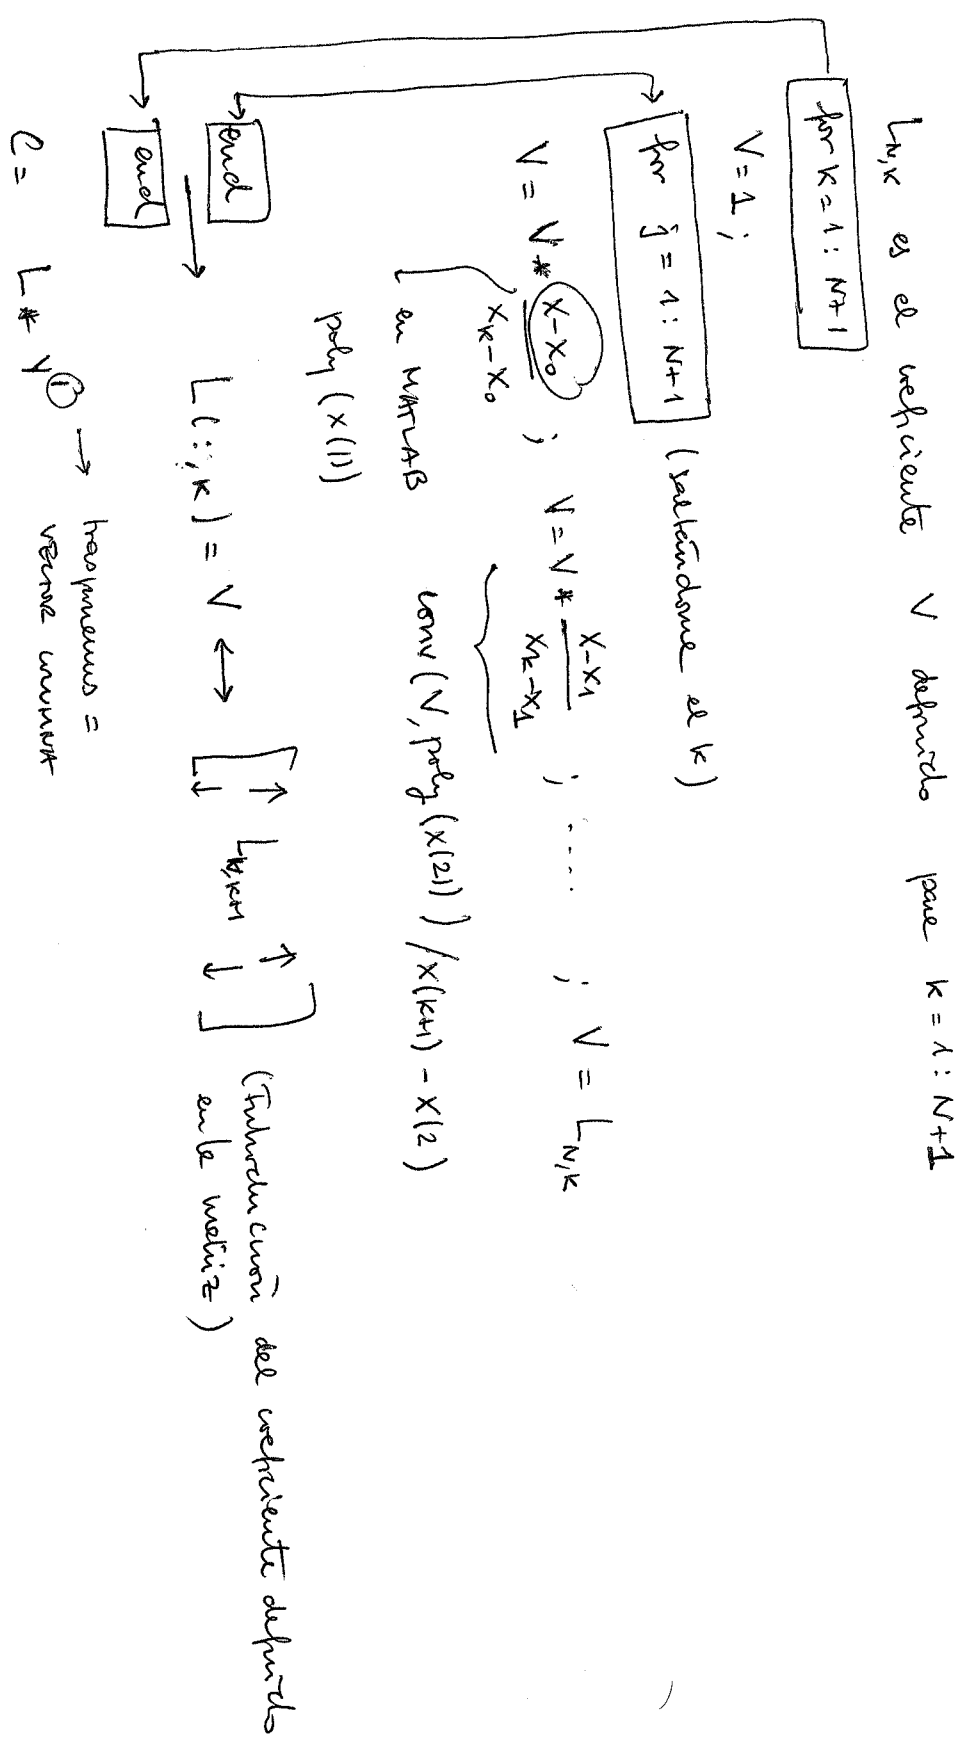 L_{N,K} es el coeficiente V definido para k = 1 : N+1
for k = 1 : N+1
V = 1 ;
for j = 1 : N+1 (saltándome el k)
V = V * \frac{X-X_0}{X_k-X_0} ; V = V * \frac{X-X_1}{X_k-X_1} ; .... ; V = L_{N,K}
en MATLAB
poly (X(1))
conv (V, poly (X(2)) / X(k+1) - X(2)
end
L(:,K) = V ↔ [ ↑ ↓ L_{N,K+1} ↑ ↓ ] (Introducción del coeficiente definido
en la matriz)
end
C = L * Y' → trasponemos =
VECTOR COLUMNA